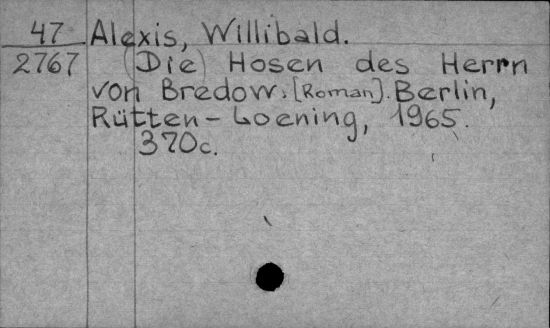 47 Alexis, Willibald.
2767 (Die) Hosen des Herrn
von Bredow. [Roman]. Berlin,
Rütten-Loening, 1965.
370c.